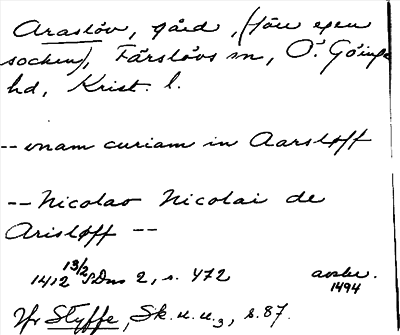 Araslöv, gård, (förr egen
socken), Färlövs sn, Ö. Göinge
hd, Krist. l.
-- unam curiam in Aarsløff
-- Nicolao Nicolai de
Arisløff --
1412 13/2 SDns 2, s. 472 avskr. 1494
Jfr Styffe, Sk. u. u.3, s. 87.